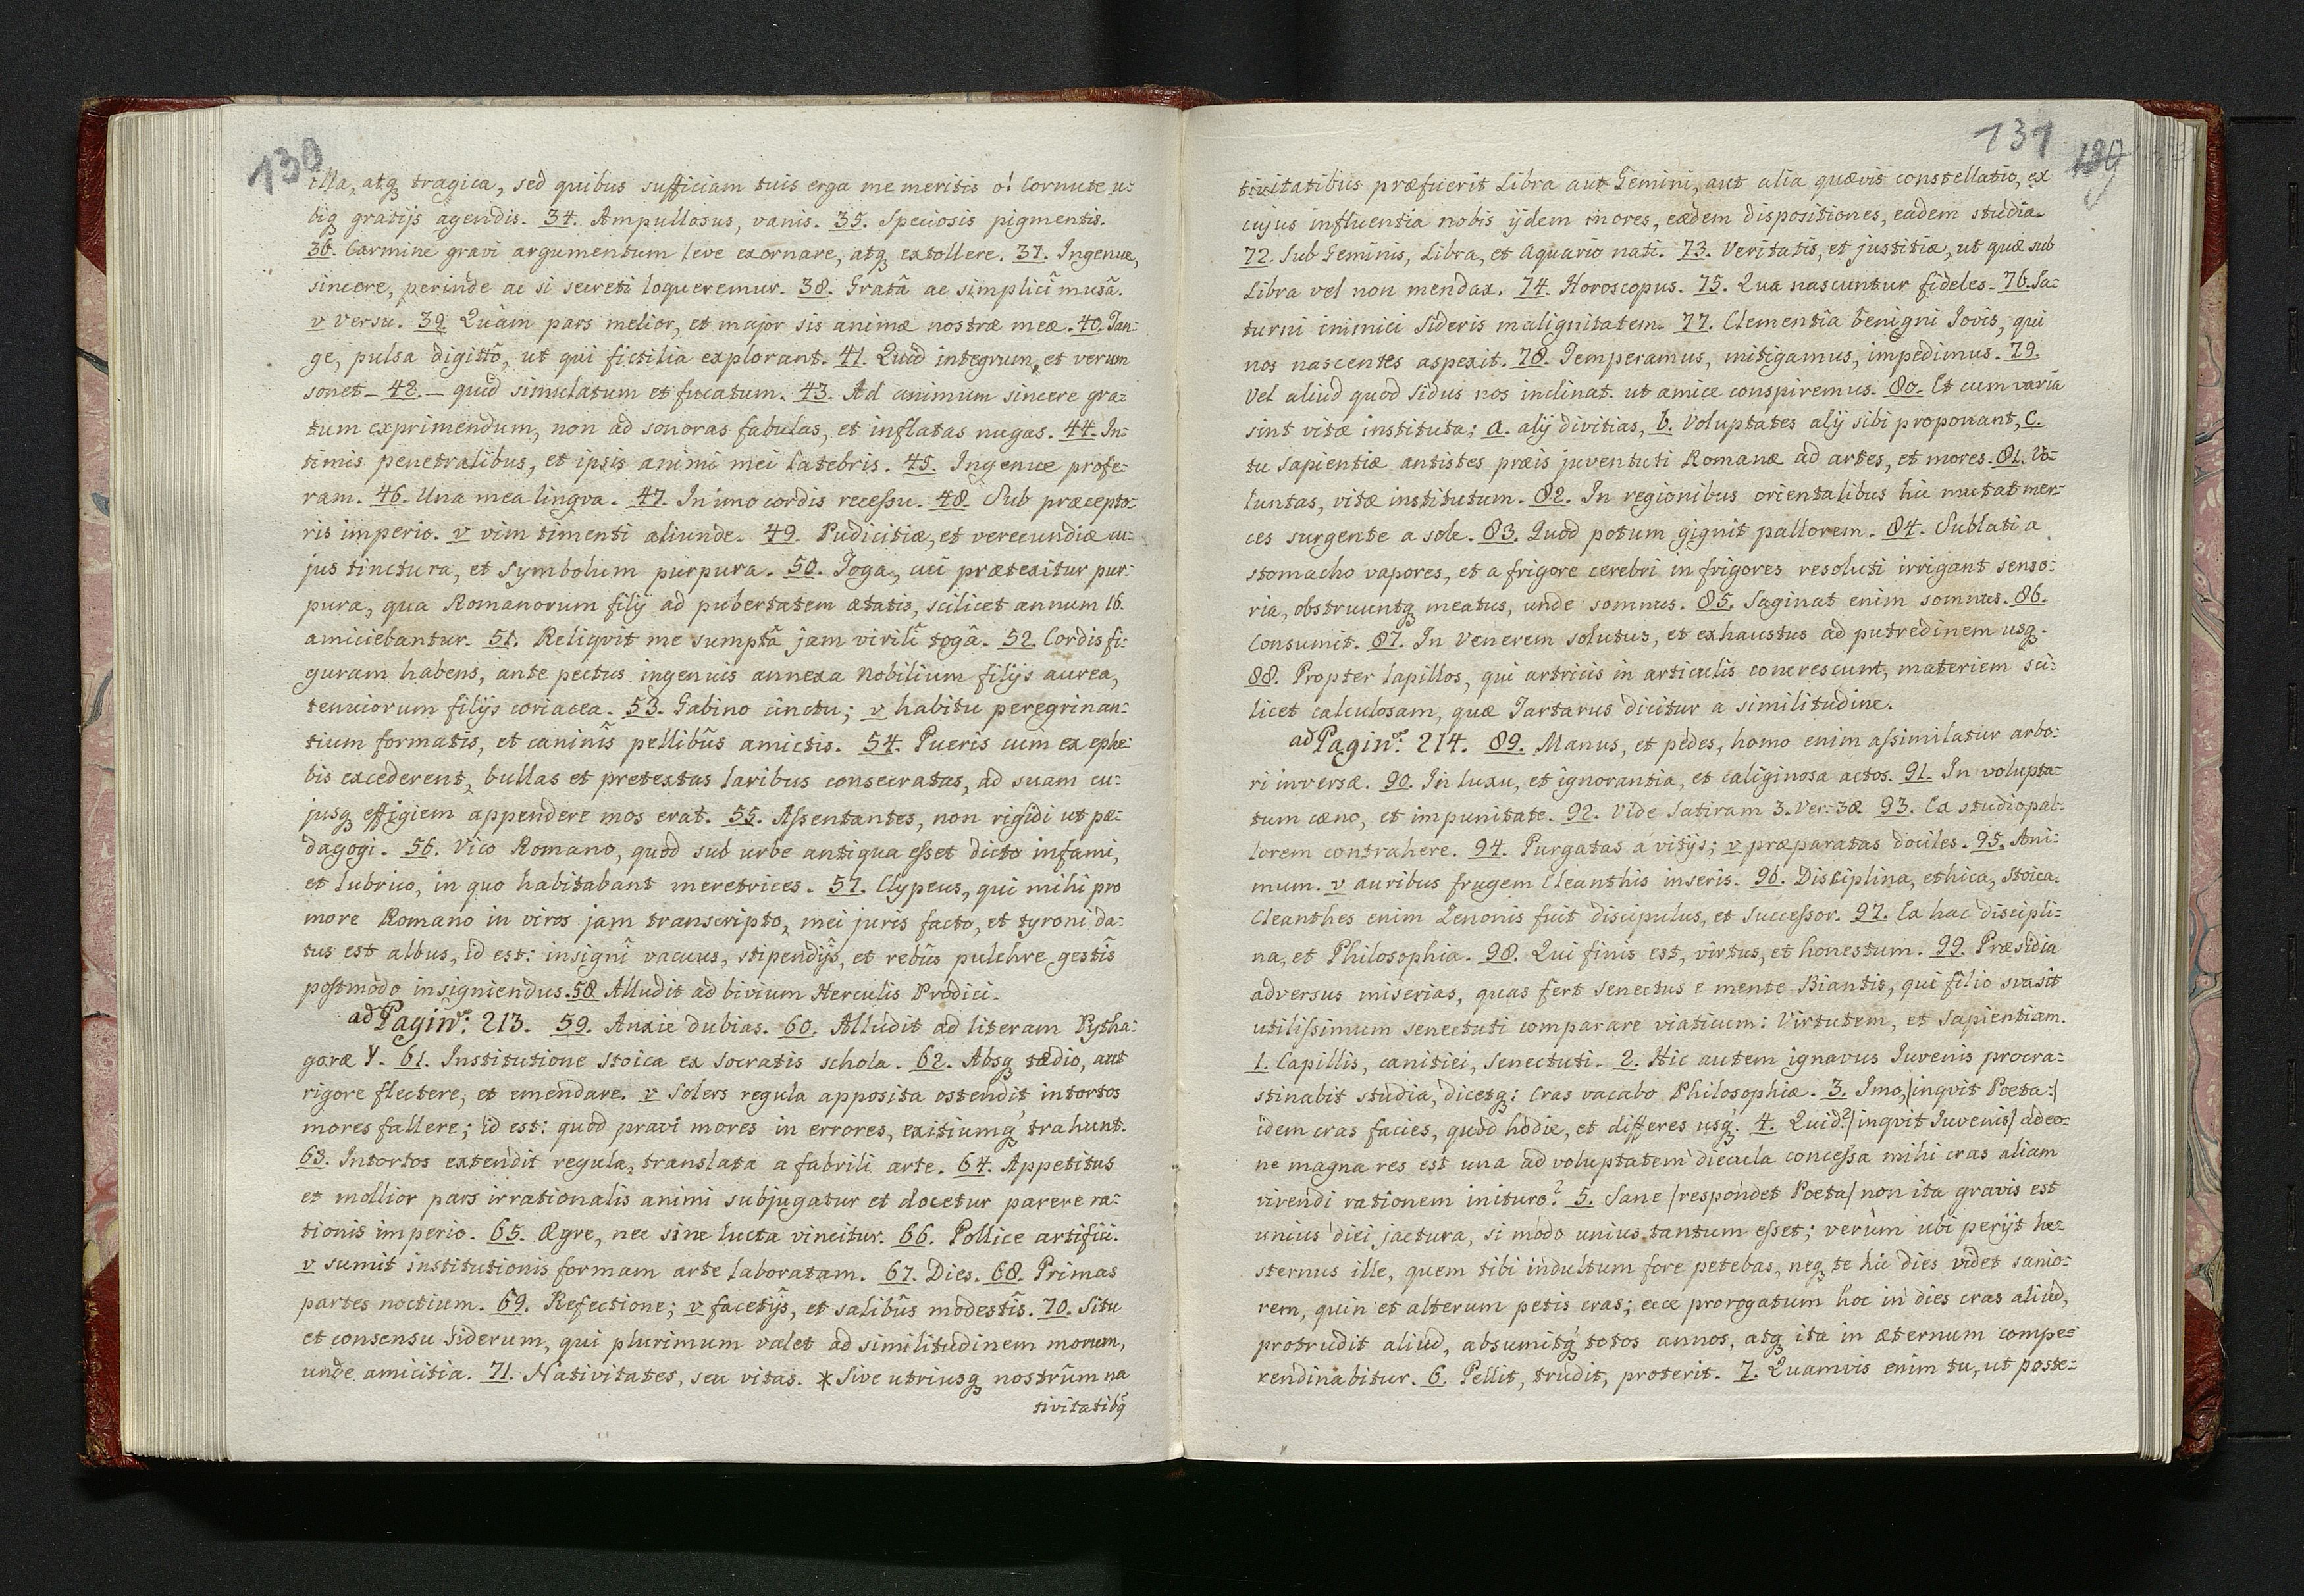 130
illa, atq3 tragica, sed quibus sufficiam tuis erga me meritis o! Cornute u:
biq3 gratijs agendis. 34. Ampullosus, vanis. 35. Speciosis pigmentis.
36. Carmine gravi argumentum leve exornare, atq3 extollere. 37. Ingenue,
sincere, perinde ac si secreti loqueremur. 38. Gratâ ac simplici musâ.
v versu. 39. Quàm pars melior, et major sis animæ nostræ meæ. 40. Tan:
ge, pulsa digitô, ut qui fictilia explorant. 41. Quid integrum, et verum
sonet – 42. – quid simulatum et fucatum. 43. Ad animum sincere gra:
tum exprimendum, non ad sonoras fabulas, et inflatas nugas. 44. In:
timis penetralibus, et ipsis animi mei latebris. 45. Ingenue profe:
ram. 46. Una mea lingva. 47. In imo cordis recessu. 48. Sub præcepto:
ris imperio. v vim timenti aliunde. 49. Pudicitiæ, et verecundiæ cu:
jus tinctura, et symbolum purpura. 50. Toga, cui prætexitur pur:
pura, qua Romanorum filij ad pubertatem ætatis, scilicet annum 16.
amiciebantur. 51. Reliqvit me sumptâ jam virilî togâ. 52. Cordis fi:
guram habens, ante pectus ingenuis annexa Nobilium filijs aurea,
tenuiorum filijs coriacea. 53. Gabino cinctu; v habitu peregrinan:
tium formatis, et caninîs pellibûs amictis. 54. Pueris cum ex ephe:
bis excederent, bullas et pretextas laribus consecratas, ad suam cu:
jusq3 effigiem appendere mos erat. 55. Assentantes, non rigidi ut pæ:
dagogi. 56. Vico Romano, quod sub urbe antiqua esset dicto infami,
et lubrico, in quo habitabant meretrices. 57. Clypeus, qui mihi pro
more Romano in viros jam transcripto, mei juris facto, et tyroni da:
tus est albus, id est: insignî vacuus, stipendijs, et rebûs pulchre gestîs
postmodo insigniendus. 58 Alludit ad bivium Herculis Prodici.
ad Pagin: 213. 59. Anxie dubias. 60. Alludit ad literam Pytha:
goræ Y. 61. Institutione Stoica ex Socratis schola. 62. Absq3 tædio, aut
rigore flectere, et emendare. v Solers regula apposita ostendit intortos
mores fallere; id est: quod pravi mores in errores, exitiumq3 trahunt.
63. Intortos extendit regula, translata a fabrili arte. 64. Appetitus
et mollior pars irrationalis animi subjugatur et docetur parere ra:
tionis imperio. 65. Ægre, nec sine lucta vincitur. 66. Pollice artifici.
v sumit institutionis formam arte laboratam. 67. Dies. 68. Primas
partes noctium. 69. Refectione; v facetijs, et salibûs modestîs. 70. Situ
et consensu siderum, qui plurimum valet ad similitudinem morum,
unde amicitia. 71. Nativitates, seu vitas. * Sive utriusq3 nostrûm na
tivitatibq
131 129
tivitatibus præfuerit Libra aut Gemini, aut alia quævis constellatio, ex
cujus influentia nobis ijdem mores, eædem dispositiones, eadem studia.
72. Sub Geminis, Libra, et Aquario nati. 73. Veritatis, et justitiæ, ut quæ sub
Libra vel non mendax. 74. Horoscopus. 75. Qua nascuntur fideles. 76. Sa:
turni inimici Sideris malignitatem. 77. Clementia benigni Jovis, qui
nos nascentes aspexit. 78. Temperamus, mitigamus, impedimus. 79.
Vel aliud quod Sidus nos inclinat. ut amice conspiremus. 80. Et cum varia
sint vitæ instituta; a. alij divitias, b. Voluptates alij sibi proponant, c.
tu Sapientiæ antistes præis juventuti Romanæ ad artes, et mores. 81. Vo:
luntas, vitæ institutum. 82. In regionibus orientalibus hic mutat mer:
ces surgente a sole. 83. Quod potum gignit pallorem. 84. Sublati a
stomacho vapores, et a frigore cerebri in frigores resoluti irrigant senso:
ria, obstruuntq3 meatus, unde somnus. 85. Saginat enim somnus. 86.
Consumit. 87. In Venerem solutus, et exhaustus ad putredinem usq3.
88. Propter lapillos, qui artricis in articulis concrescunt, materiem sci:
licet calculosam, quæ Tartarus dicitur a similitudine.
ad Pagin: 214. 89. Manus, et pedes, homo enim assimilatur arbo:
ri inversæ. 90. In luxu, et ignorantia, et caliginosa actos. 91. In volupta:
tum cæno, et impunitate. 92. Vide Satiram 3. Ver: 32 93. Ex studio pal:
lorem contrahere. 94. Purgatas á vitijs; v præparatas dociles. 95. Ani:
mum. v auribus frugem Cleanthis inseris. 96. Disciplina, ethica, Stoica.
Cleanthes enim Zenonis fuit discipulus, et Successor. 97. Ex hac discipli:
na, et Philosophia. 98. Qui finis est, virtus, et honestum. 99. Præsidia
adversus miserias, quas fert senectus e mente Biantis, qui filio svasit
utilissimum senectuti comparare viaticum: Virtutem, et Sapientiam.
1. Capillis, canitiei, Senectuti. 2. Hic autem ignavus Iuvenis procra:
stinabit studia, dicetq3: Cras vacabo Philosophiæ. 3. Imo, /inqvit Poeta:/
idem cras facies, quod hodie, et differes usq3. 4. Quid? /inqvit Iuvenis/ adeo:
ne magna res est una ad voluptatem diecula concessa mihi cras aliam
vivendi rationem inituro? 5. Sane /respondet Poeta/ non ita gravis est
unius diei jactura, si modo unius tantum esset; verùm ubi perijt he:
sternus ille, quem tibi indultum fore petebas, neq3 te hic dies videt sanio:
rem, quin et alterum petis cras; ecce prorogatum hoc in dies cras aliud,
protrudit aliud, absumitq3 totos annos, atq3 ita in æternum compe:
rendinabitur. 6. Pellit, trudit, proterit. 7. Quamvis enim tu, ut poste: